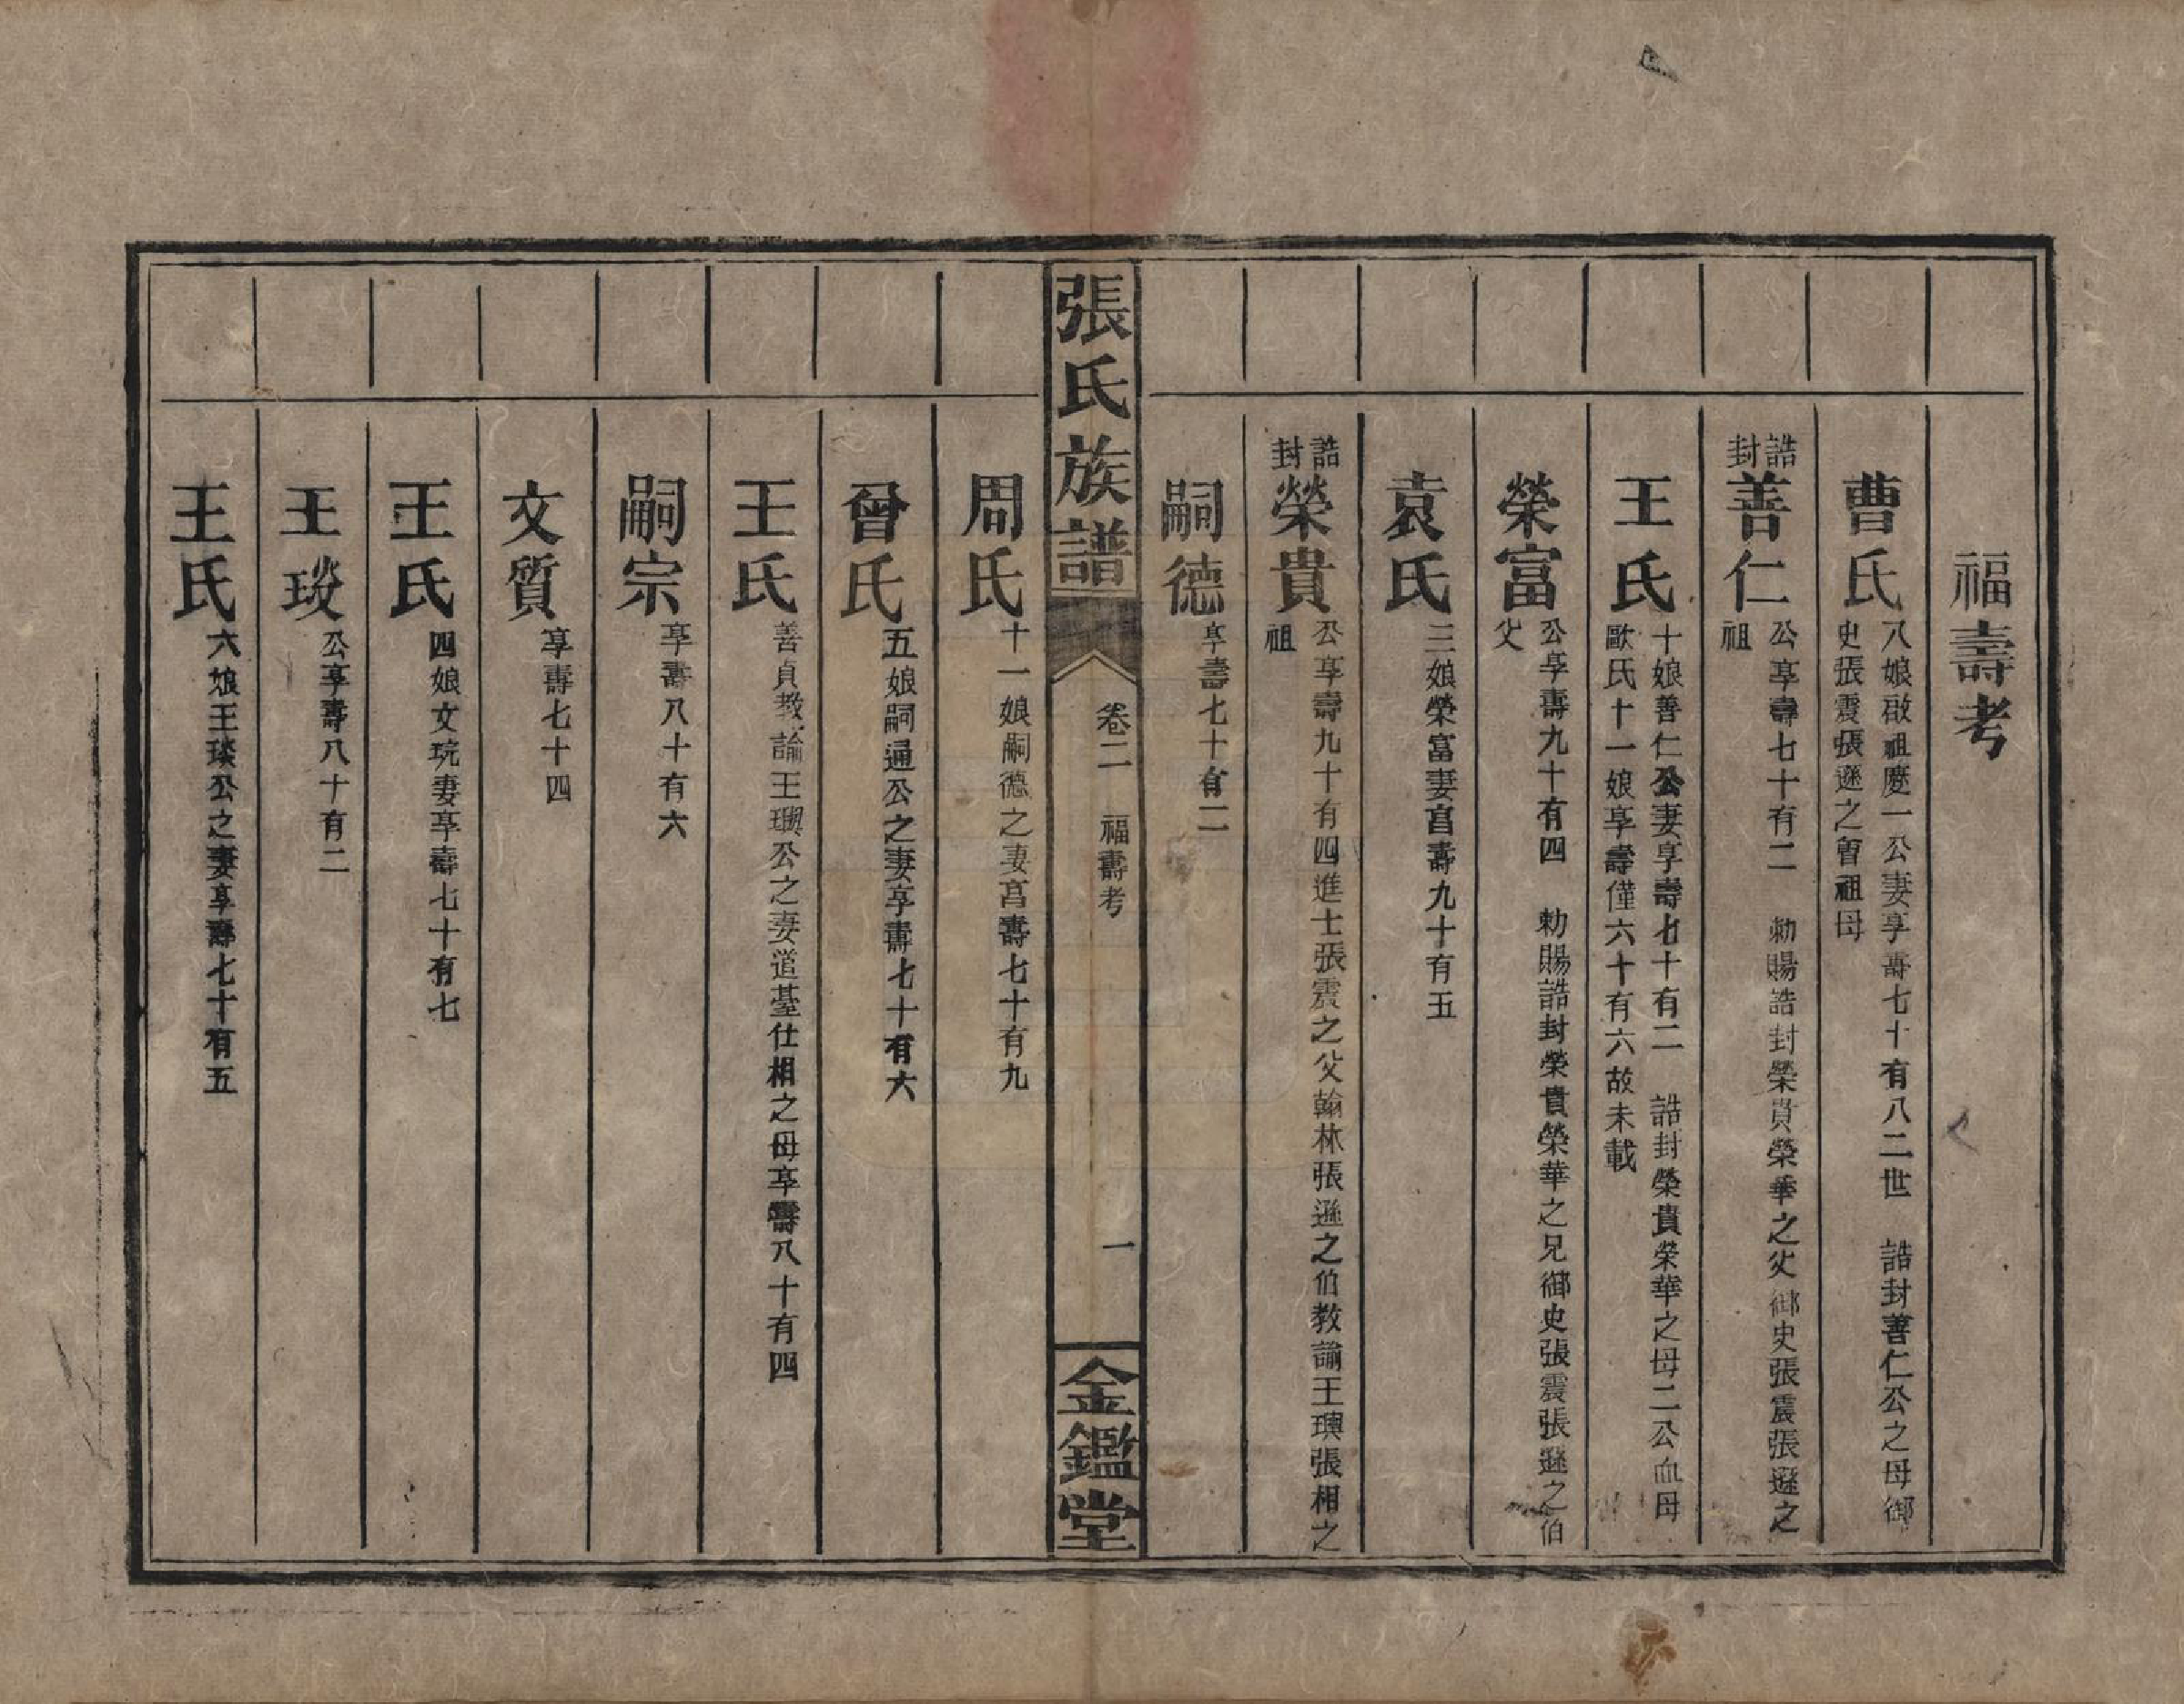 福壽考
曹氏 八娘啟祖慶一公妻享壽七十有八二世 誥封善仁公之母御
史張震張遜之曾祖母
誥封善仁 公享壽七十有二 勅賜誥封榮貴榮華之父御史張震張遜之
祖
王氏 十娘善仁公妻享壽七十有二 誥封榮貴榮華之母二公血母
歐氏十一娘享壽僅六十有六故未載
榮富 公享壽九十有四 勅賜誥封榮貴榮華之兄御史張震張遜之伯
父
袁氏 三娘榮富妻享壽九十有五
誥封榮貴 公享壽九十有四進士張震之父翰林張遜之伯教諭王璵張相之
祖
嗣德 享壽七十有二
張氏族譜 卷二 福壽考 一 金鑑堂
周氏 十一娘嗣德之妻享壽七十有九
曾氏 五娘嗣通公之妻享壽七十有六
王氏 善貞教諭王璵公之妻道臺仕相之母享壽八十有四
嗣宗 享壽八十有六
文質 享壽七十四
王氏 四娘文琓妻享壽七十有七
王琰 公享壽八十有二
王氏 六娘王琰公之妻享壽七十有五